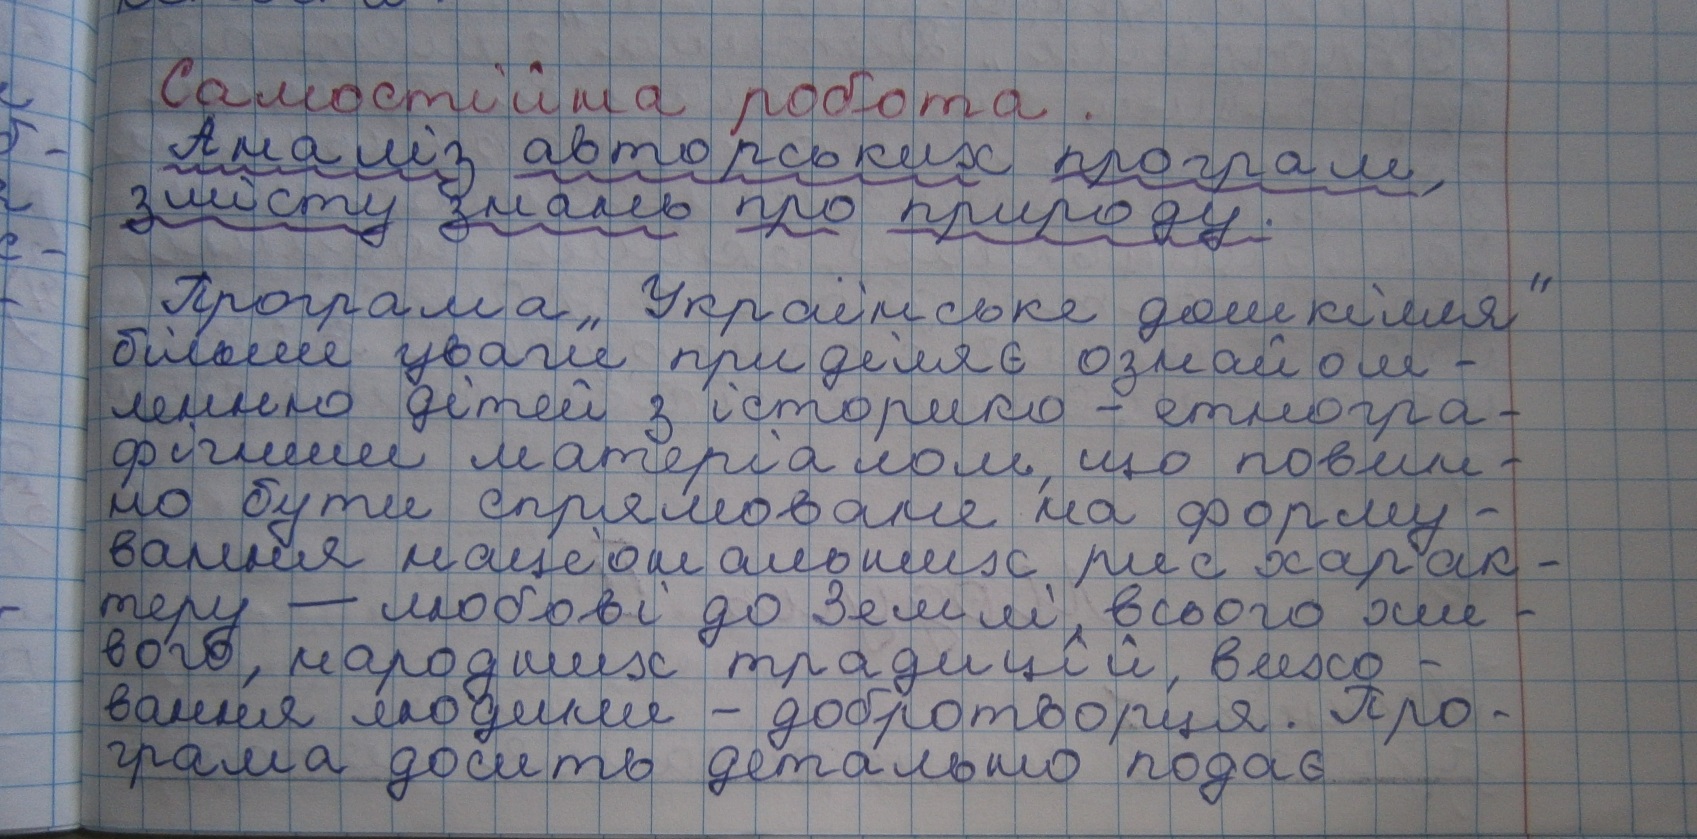 Самостійна робота.
Аналіз авторських програм,
змісту знань про природу.
Програма „Українське дошкілля"
більше уваги приділяє ознайом-
ленню дітей з історико-етногра-
фічним матеріалом, що повин-
но бути спрямоване на форму-
вання національних рис харак-
теру — любові до Землі, всього жи-
вого, народних традицій, вихо-
вання людини - добротворця. Про-
грама досить детально подає